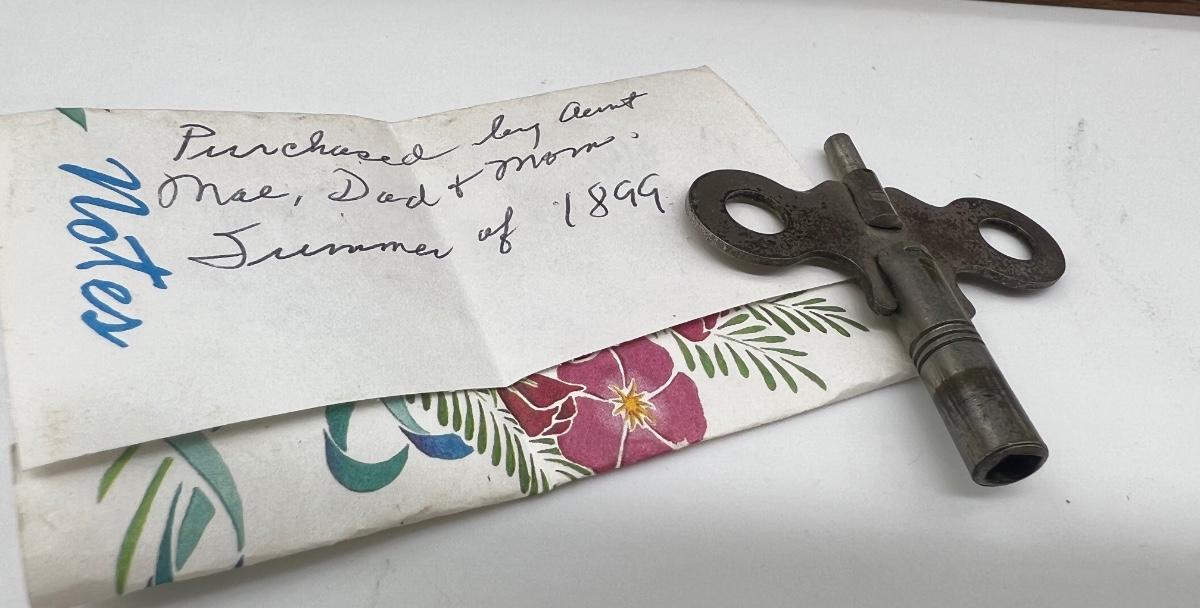 Notes
Purchased by Aunt
Mae, Dad + Mom.
Summer of 1899